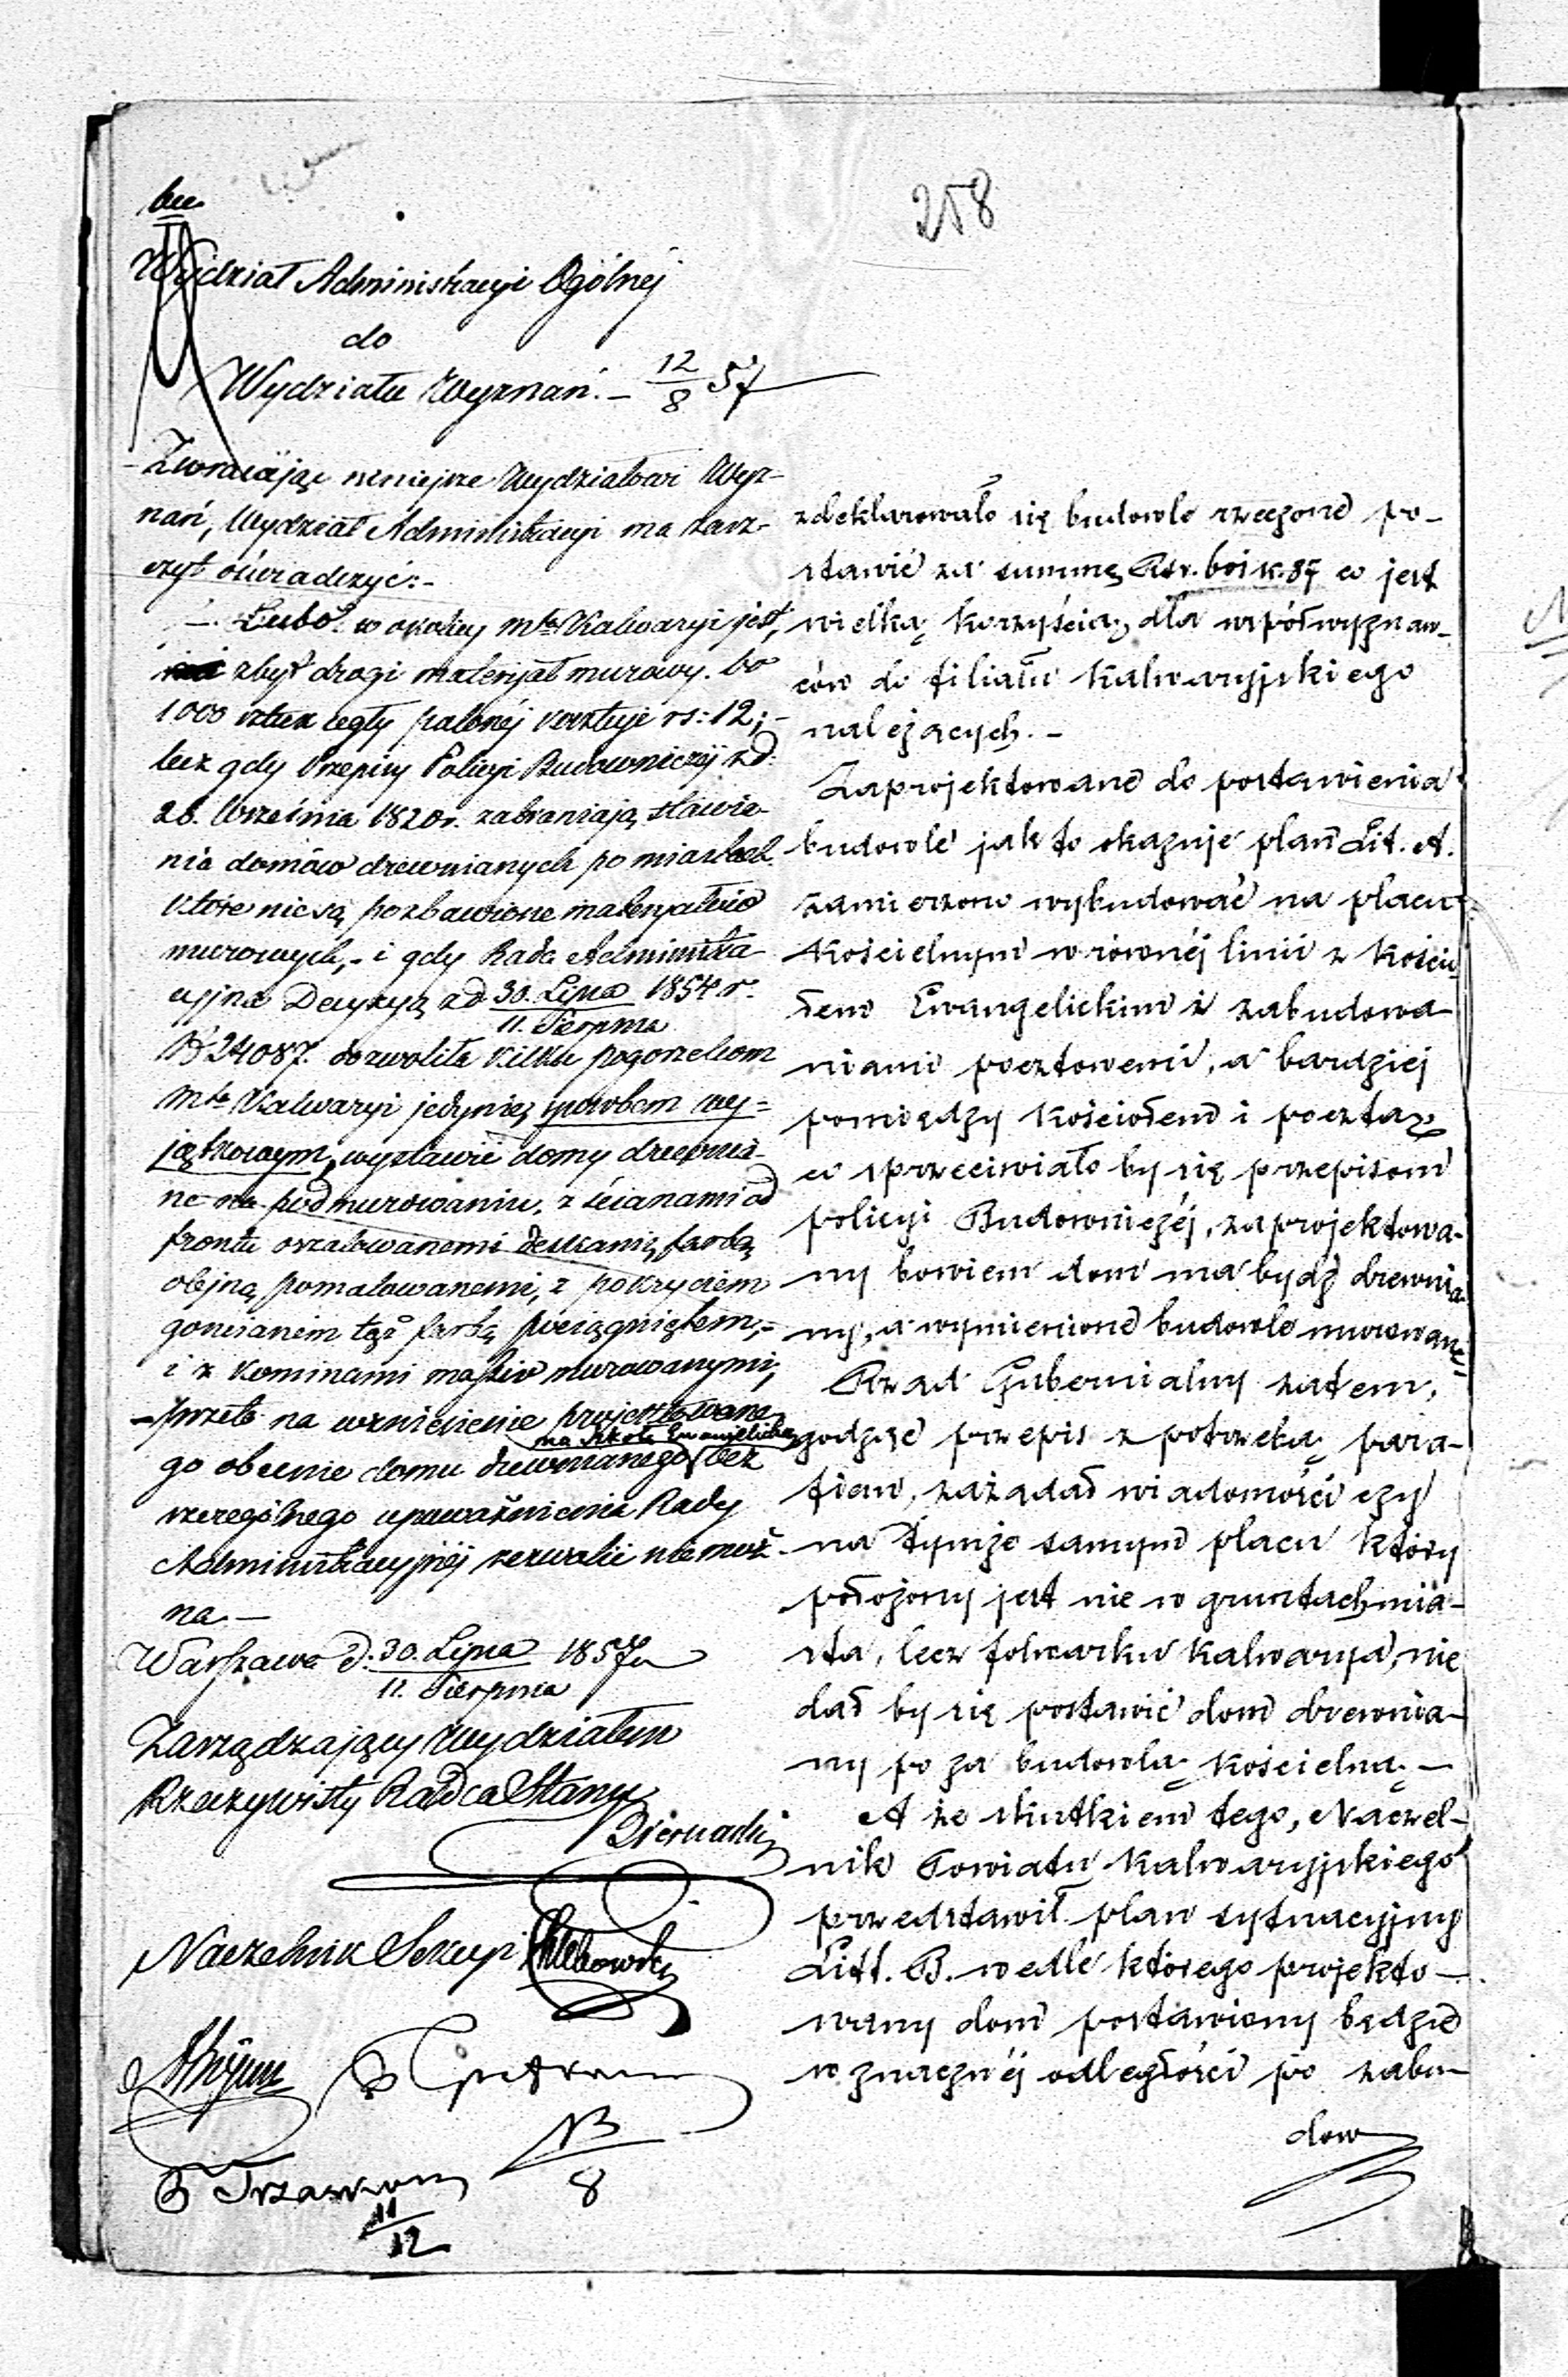 258
Wydział Administracyi Ogólnéj
do
Wydziału Wyznań. – 12/8 57
Zwracając niniejsze Wydziałowi Wyz-
nań, Wydział Administracyi ma zasz-
czyt oświadczyć:-
– Lubo w okolicy mta Kalwaryi jest,
zbyt drogi materyał murowy. bo
1000 sztuk cegły palonéj kosztuje rs: 12;-
lecz gdy Przepisy Policyi Budowniczéj z d.
26. Września 1820 r. zabraniają stawia-
nia domów drewnianych po miastach
które nie są pozbawione materyałów
murowych,- i gdy Rada Administra-
cyjna Decyzyą z d. 30. Lipca 1854 r.
11. Sierpnia
№ 24087. dozwoliła kilku pogorzelcom
mta Kalwaryi jedynie, sposobem wy=
jątkowym, wystawić domy drewnia-
ne na podmurowaniu, z ścianami od
frontu oszalowanemi deskami, farbą
olejną pomalowanemi, z pokryciem
goncianem tąż farbą pociągniętem,-
i z kominami massiv murowanymi,
– przeto na wzniesienie projektowane-
na Szkołę Ewanjelicką
go obecnie domu drewnianego bez
szczególnego upoważnienia Rady
Administracyjnéj zezwolić nie moż-
na. –
Warszawa d. 30. Lipca 1857 r.
11. Sierpnia
Zarządzający Wydziałem
Rzeczywisty Radca Stanu
Biernacki
Naczelnik Sekcyi
8
11/12
zdeklarowało się budowle rzeczone po-
stawić za summę Rsr. 601 k. 87 co jest
wielką korzyścią, dla współwyznaw-
ców do filiału Kalwaryjskiego
należących. –
Zaprojektowane do postawienia
budowle jak to okazuje plan Lit. A.
zamierzono wybudować na placu
Kościelnym w równéj linii z Kościo-
łem Ewangelickim i zabudowa-
niami pocztowemi, a bardziej
pomiędzy Kościołem i pocztą
co sprzeciwiało by się przepisom
policyi Budowniczéj, zaprojektowa-
ny bowiem dom ma bydź drewnia-
ny, a wymienione budowle murowane
Rząd Gubernialny zatem,
godząc przepis z potrzebą para-
fian, zażądał wiadomości czy
na tymże samym placu który
położony jest nie w gruntach mia-
sta, lecz folwarku Kalwarya, nie
dał by się postawić dom drewnia-
ny po za budowlą Kościelną. –
A że skutkiem tego, Naczel-
nik Powiatu Kalwaryjskiego
przedstawił plan sytuacyjny
Litt. B. wedle którego projekto-
wany dom postawiony będzie
w znacznéj odległości po zabu-
dow